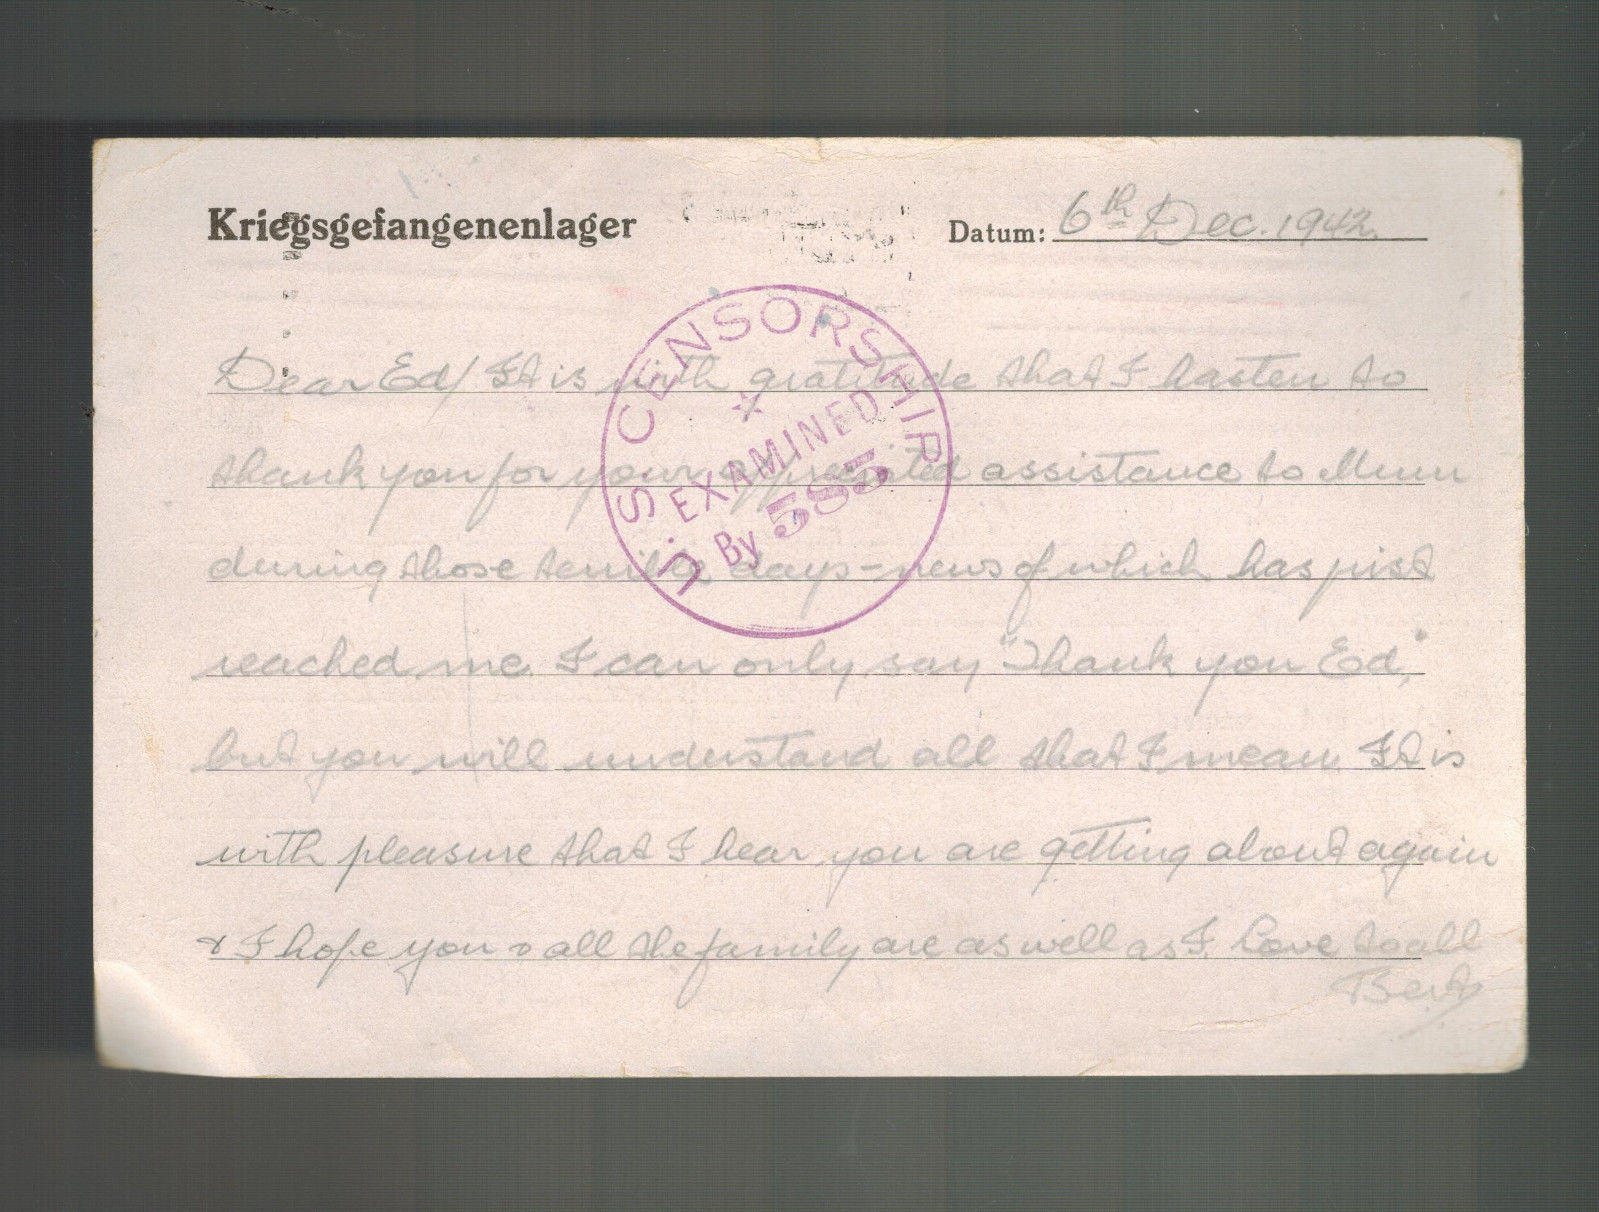 Kriegsgefangenenlager
Datum: 6th Dec. 1942.
U.S. CENSORSHIP
EXAMINED
By 585
Dear Ed/ It is with gratitude that I hasten to
thank you for your appreciated assistance to Mum
during those terrible days - news of which has just
reached me. I can only say "Thank you Ed,"
but you will understand all that I mean. It is
with pleasure that I hear you are getting about again
& I hope you & all the family are as well as I. Love to all
Bert